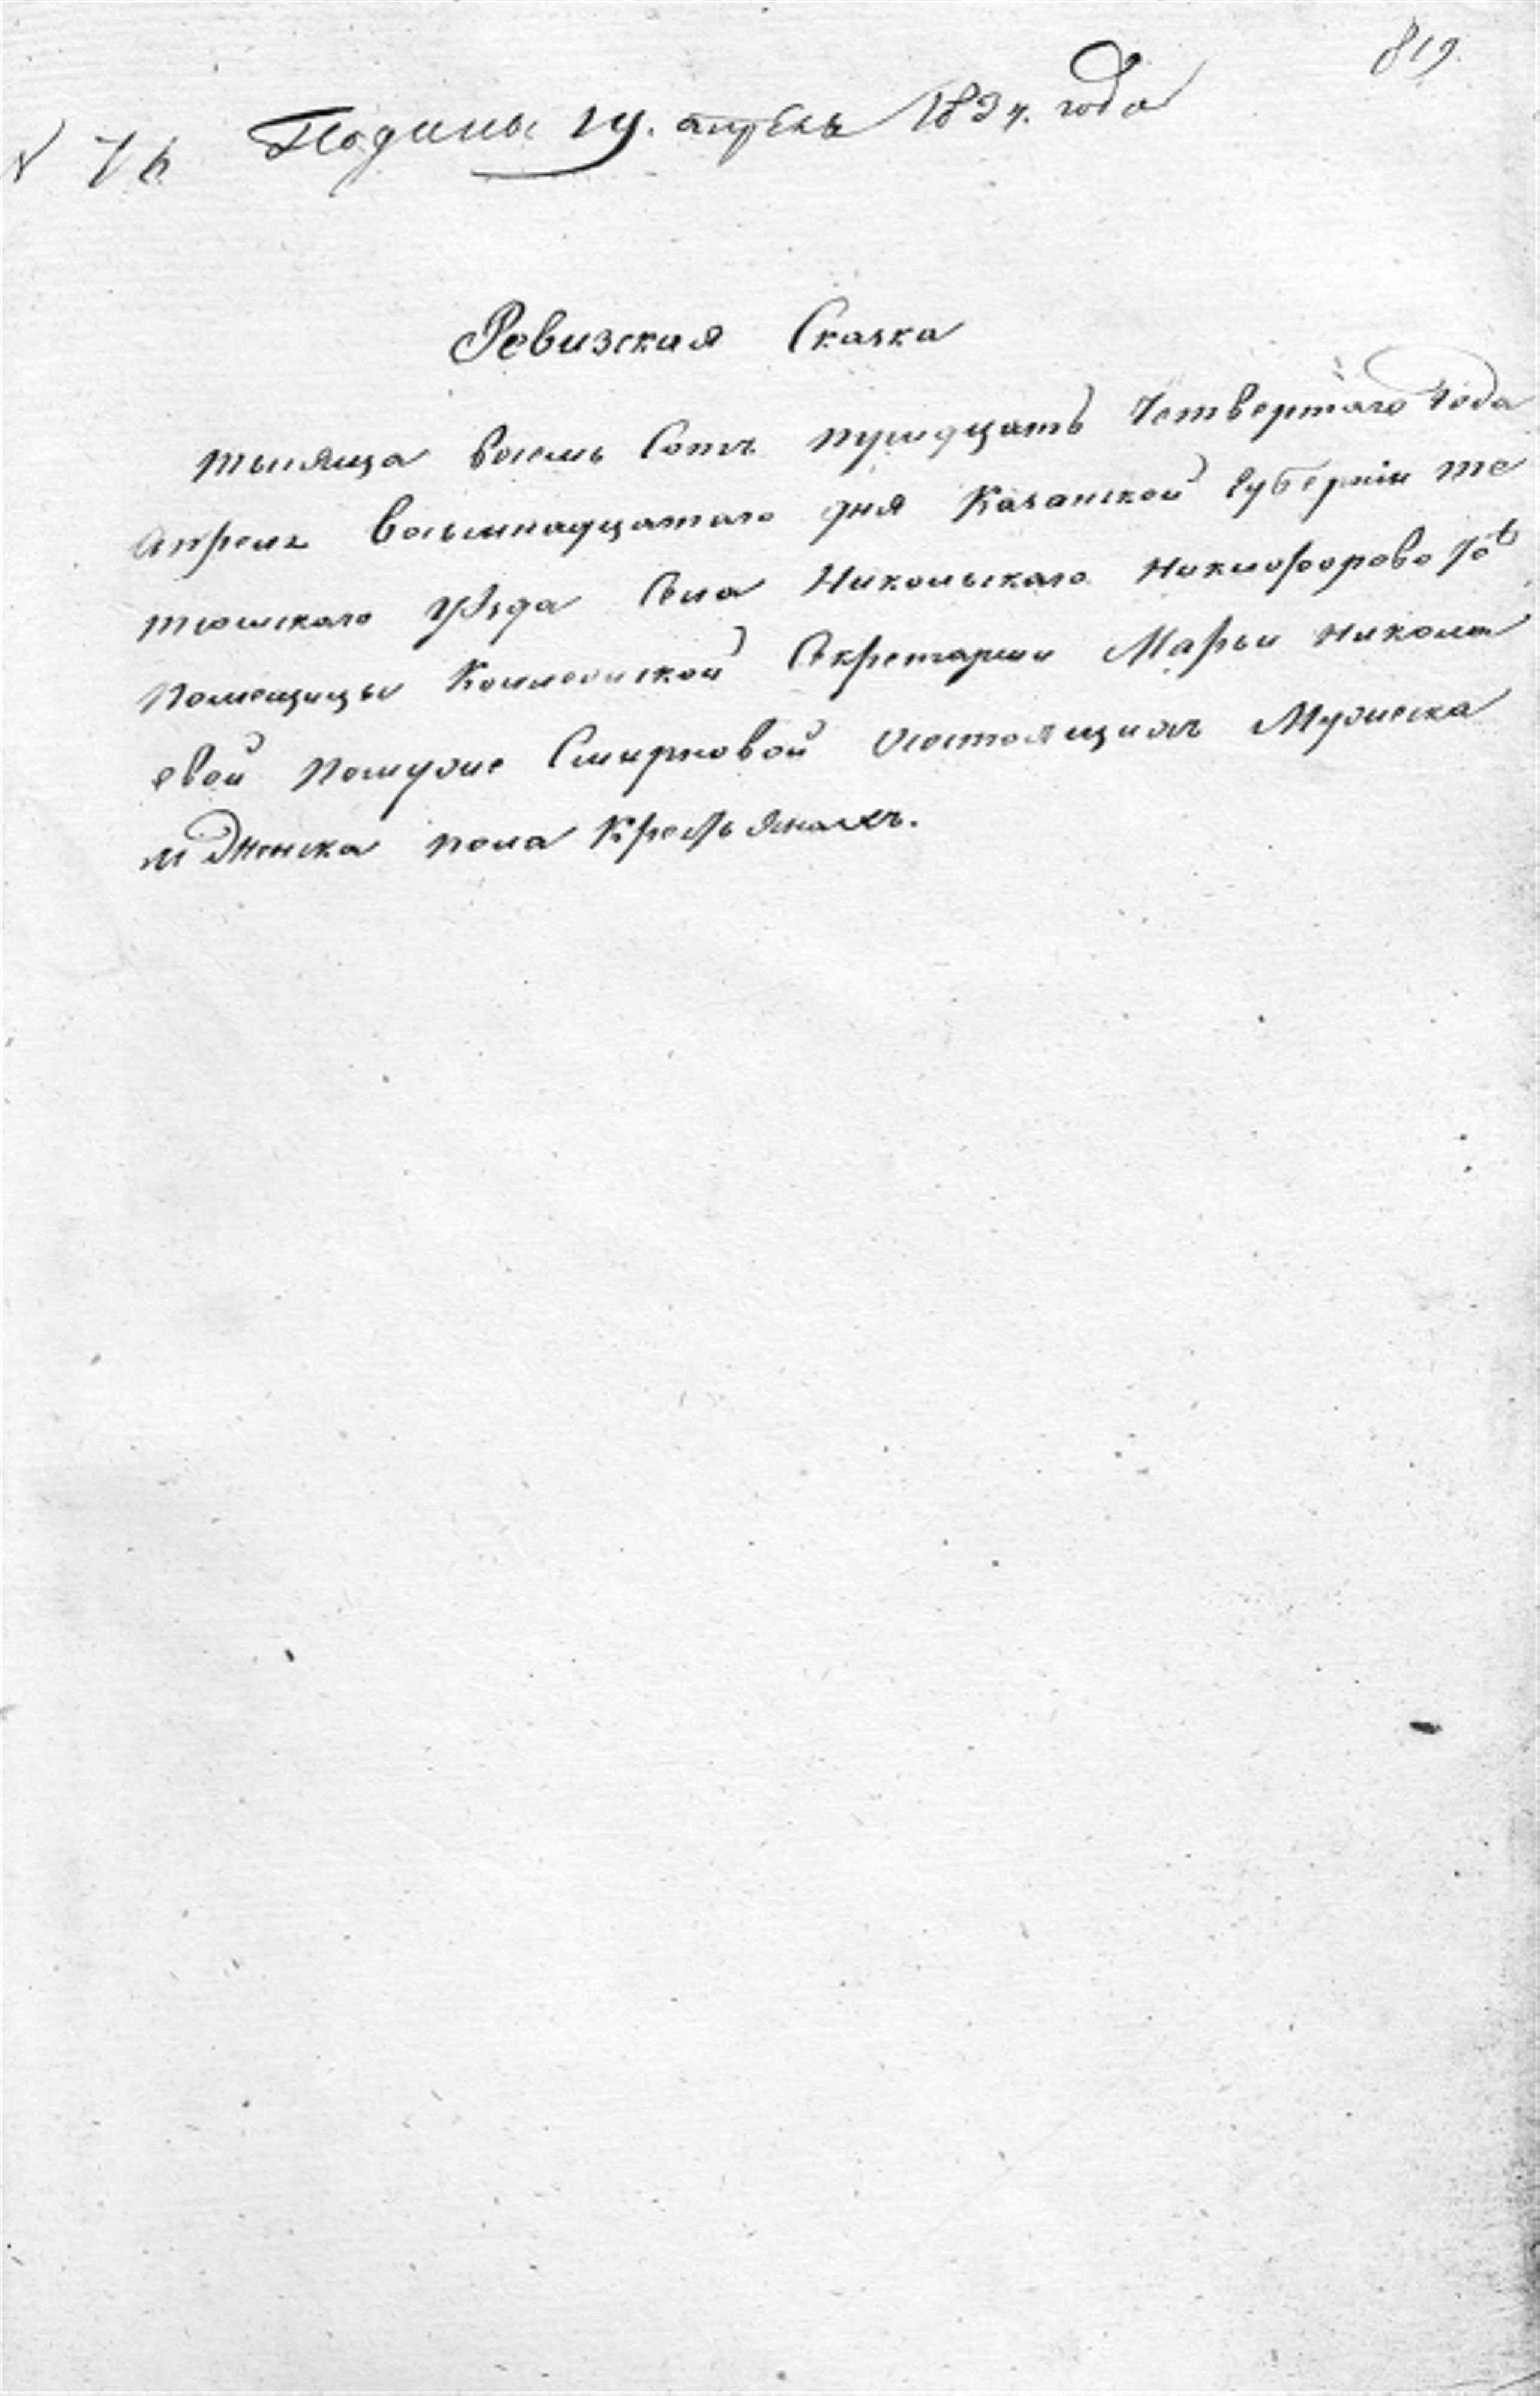 819.
N 76 Подана 19. апрѣля 1834. года
Ревизская Сказка
тысяща восемь Сотъ тридцать Четвертаго Года
апреля восьмнадцатаго дня Казанской губерніи те
тюшскаго уѣзда Села Никольскаго Никифорово тоже
Помещицы Коллежской Секретарши Марьи Никола
евой Помужне Смирновой Осостоящихъ Мужеска
и Женска пола Крестьянахъ.